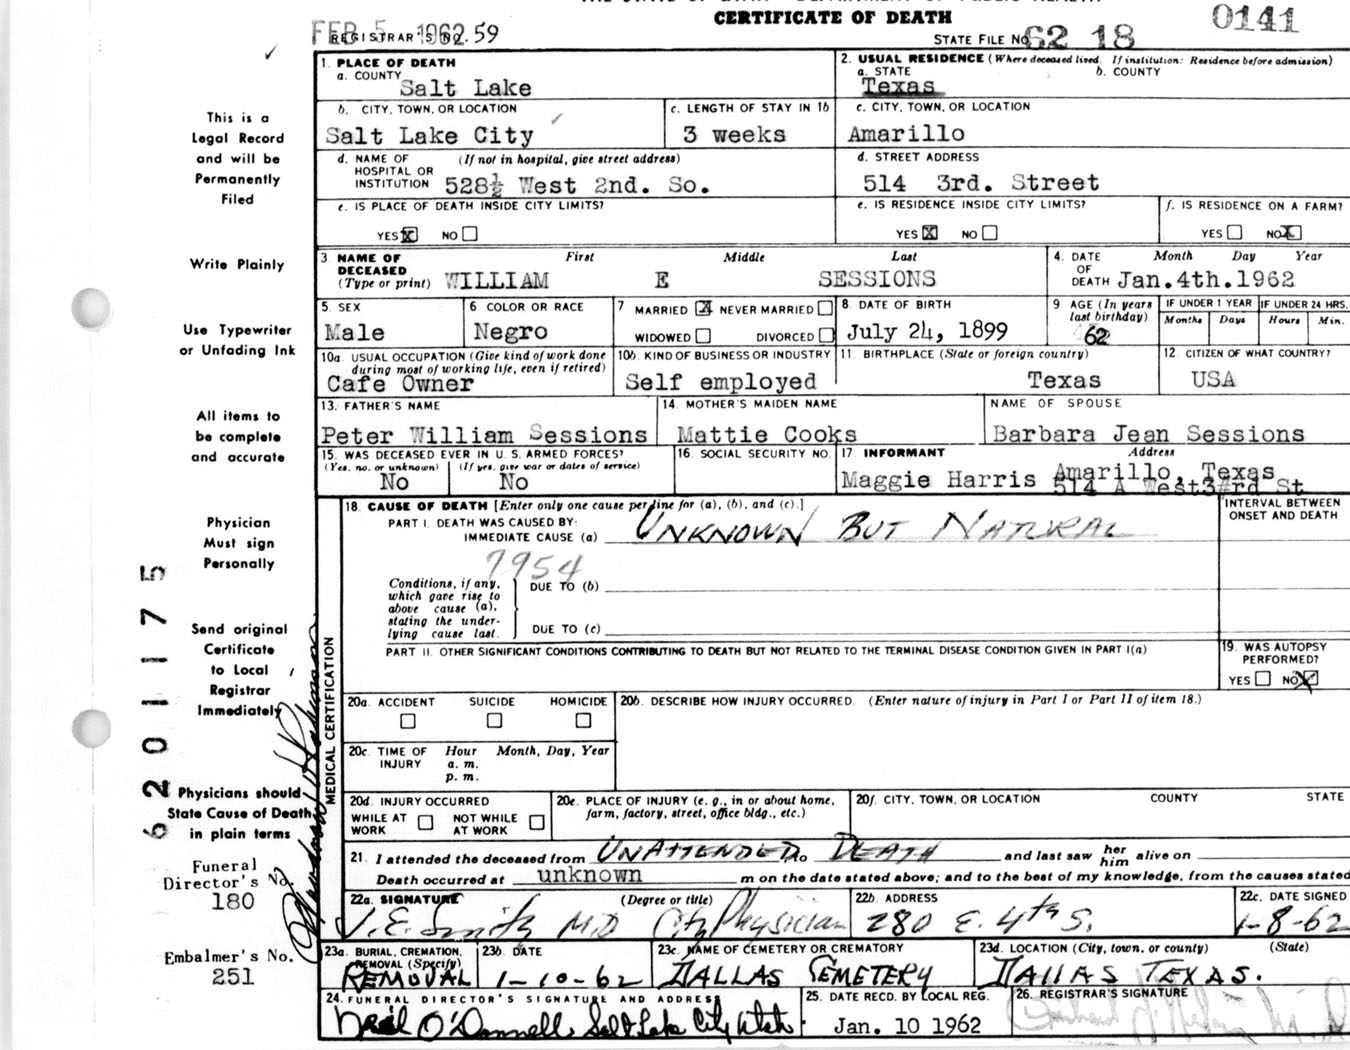 CERTIFICATE OF DEATH
0141
FEB 5 1962
REGISTRAR'S NO. 59
STATE FILE NO. 62 18
1. PLACE OF DEATH
a. COUNTY Salt Lake
2. USUAL RESIDENCE (Where deceased lived. If institution: Residence before admission)
a. STATE Texas b. COUNTY
b. CITY, TOWN, OR LOCATION Salt Lake City
c. LENGTH OF STAY IN 1b 3 weeks
c. CITY, TOWN, OR LOCATION Amarillo
d. NAME OF HOSPITAL OR INSTITUTION (If not in hospital, give street address) 528½ West 2nd. So.
d. STREET ADDRESS 514 3rd. Street
e. IS PLACE OF DEATH INSIDE CITY LIMITS? YES X NO
e. IS RESIDENCE INSIDE CITY LIMITS? YES X NO
f. IS RESIDENCE ON A FARM? YES NO X
3 NAME OF DECEASED (Type or print) First Middle Last
WILLIAM E SESSIONS
4. DATE OF DEATH Month Day Year
Jan.4th.1962
5. SEX Male
6 COLOR OR RACE Negro
7 MARRIED X NEVER MARRIED
WIDOWED DIVORCED
8. DATE OF BIRTH July 24, 1899
9 AGE (In years last birthday) 62
IF UNDER 1 YEAR Months Days
IF UNDER 24 HRS. Hours Min.
10a. USUAL OCCUPATION (Give kind of work done during most of working life, even if retired) Cafe Owner
10b. KIND OF BUSINESS OR INDUSTRY Self employed
11. BIRTHPLACE (State or foreign country) Texas
12. CITIZEN OF WHAT COUNTRY? USA
13. FATHER'S NAME Peter William Sessions
14. MOTHER'S MAIDEN NAME Mattie Cooks
NAME OF SPOUSE Barbara Jean Sessions
15. WAS DECEASED EVER IN U.S. ARMED FORCES?
(Yes, no, or unknown) No
(If yes, give war or dates of service) No
16. SOCIAL SECURITY NO.
17. INFORMANT Address
Maggie Harris Amarillo, Texas
514 A West 3rd St
MEDICAL CERTIFICATION
18. CAUSE OF DEATH [Enter only one cause per line for (a), (b), and (c).]
INTERVAL BETWEEN ONSET AND DEATH
PART I. DEATH WAS CAUSED BY:
IMMEDIATE CAUSE (a) UNKNOWN BUT NATURAL
7954
Conditions, if any, which gave rise to above cause (a), stating the underlying cause last.
DUE TO (b)
DUE TO (c)
PART II. OTHER SIGNIFICANT CONDITIONS CONTRIBUTING TO DEATH BUT NOT RELATED TO THE TERMINAL DISEASE CONDITION GIVEN IN PART I(a)
19. WAS AUTOPSY PERFORMED? YES NO X
20a. ACCIDENT SUICIDE HOMICIDE
20b. DESCRIBE HOW INJURY OCCURRED. (Enter nature of injury in Part I or Part II of item 18.)
20c. TIME OF INJURY Hour a.m. p.m. Month, Day, Year
20d. INJURY OCCURRED
WHILE AT WORK NOT WHILE AT WORK
20e. PLACE OF INJURY (e. g., in or about home, farm, factory, street, office bldg., etc.)
20f. CITY, TOWN, OR LOCATION COUNTY STATE
21. I attended the deceased from UNATTENDED to DEATH and last saw her him alive on
Death occurred at unknown m on the date stated above; and to the best of my knowledge, from the causes stated
22a. SIGNATURE (Degree or title) J. E. Smith M.D City Physician
22b. ADDRESS 280 E. 4th S.
22c. DATE SIGNED 1-8-62
23a. BURIAL, CREMATION, REMOVAL (Specify) REMOVAL
23b. DATE 1-10-62
23c. NAME OF CEMETERY OR CREMATORY DALLAS CEMETERY
23d. LOCATION (City, town, or county) (State) DALLAS TEXAS.
24. FUNERAL DIRECTOR'S SIGNATURE AND ADDRESS
Neil O'Donnell Salt Lake City Utah
25. DATE RECD. BY LOCAL REG. Jan. 10 1962
26. REGISTRAR'S SIGNATURE
This is a
Legal Record
and will be
Permanently
Filed
Write Plainly
Use Typewriter
or Unfading Ink
All items to
be complete
and accurate
Physician
Must sign
Personally
Send original
Certificate
to Local
Registrar
Immediately
Physicians should
State Cause of Death
in plain terms
Funeral
Director's No.
180
Embalmer's No.
251
6201175